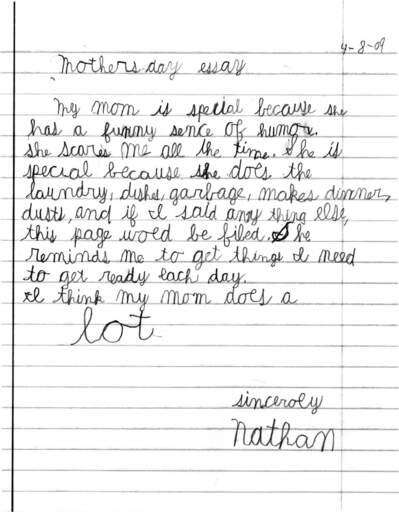 4-8-09
Mothers day essay
My mom is special because she
has a funny sence of humor.
She scares me all the time. She is
special because she does the
laundry, dishes, garbage, makes dinner,
dusts, and if I said any thing else,
this page woed be filed. She
reminds me to get things I need
to get ready each day.
I think my mom does a
lot
sinceroly
Nathan